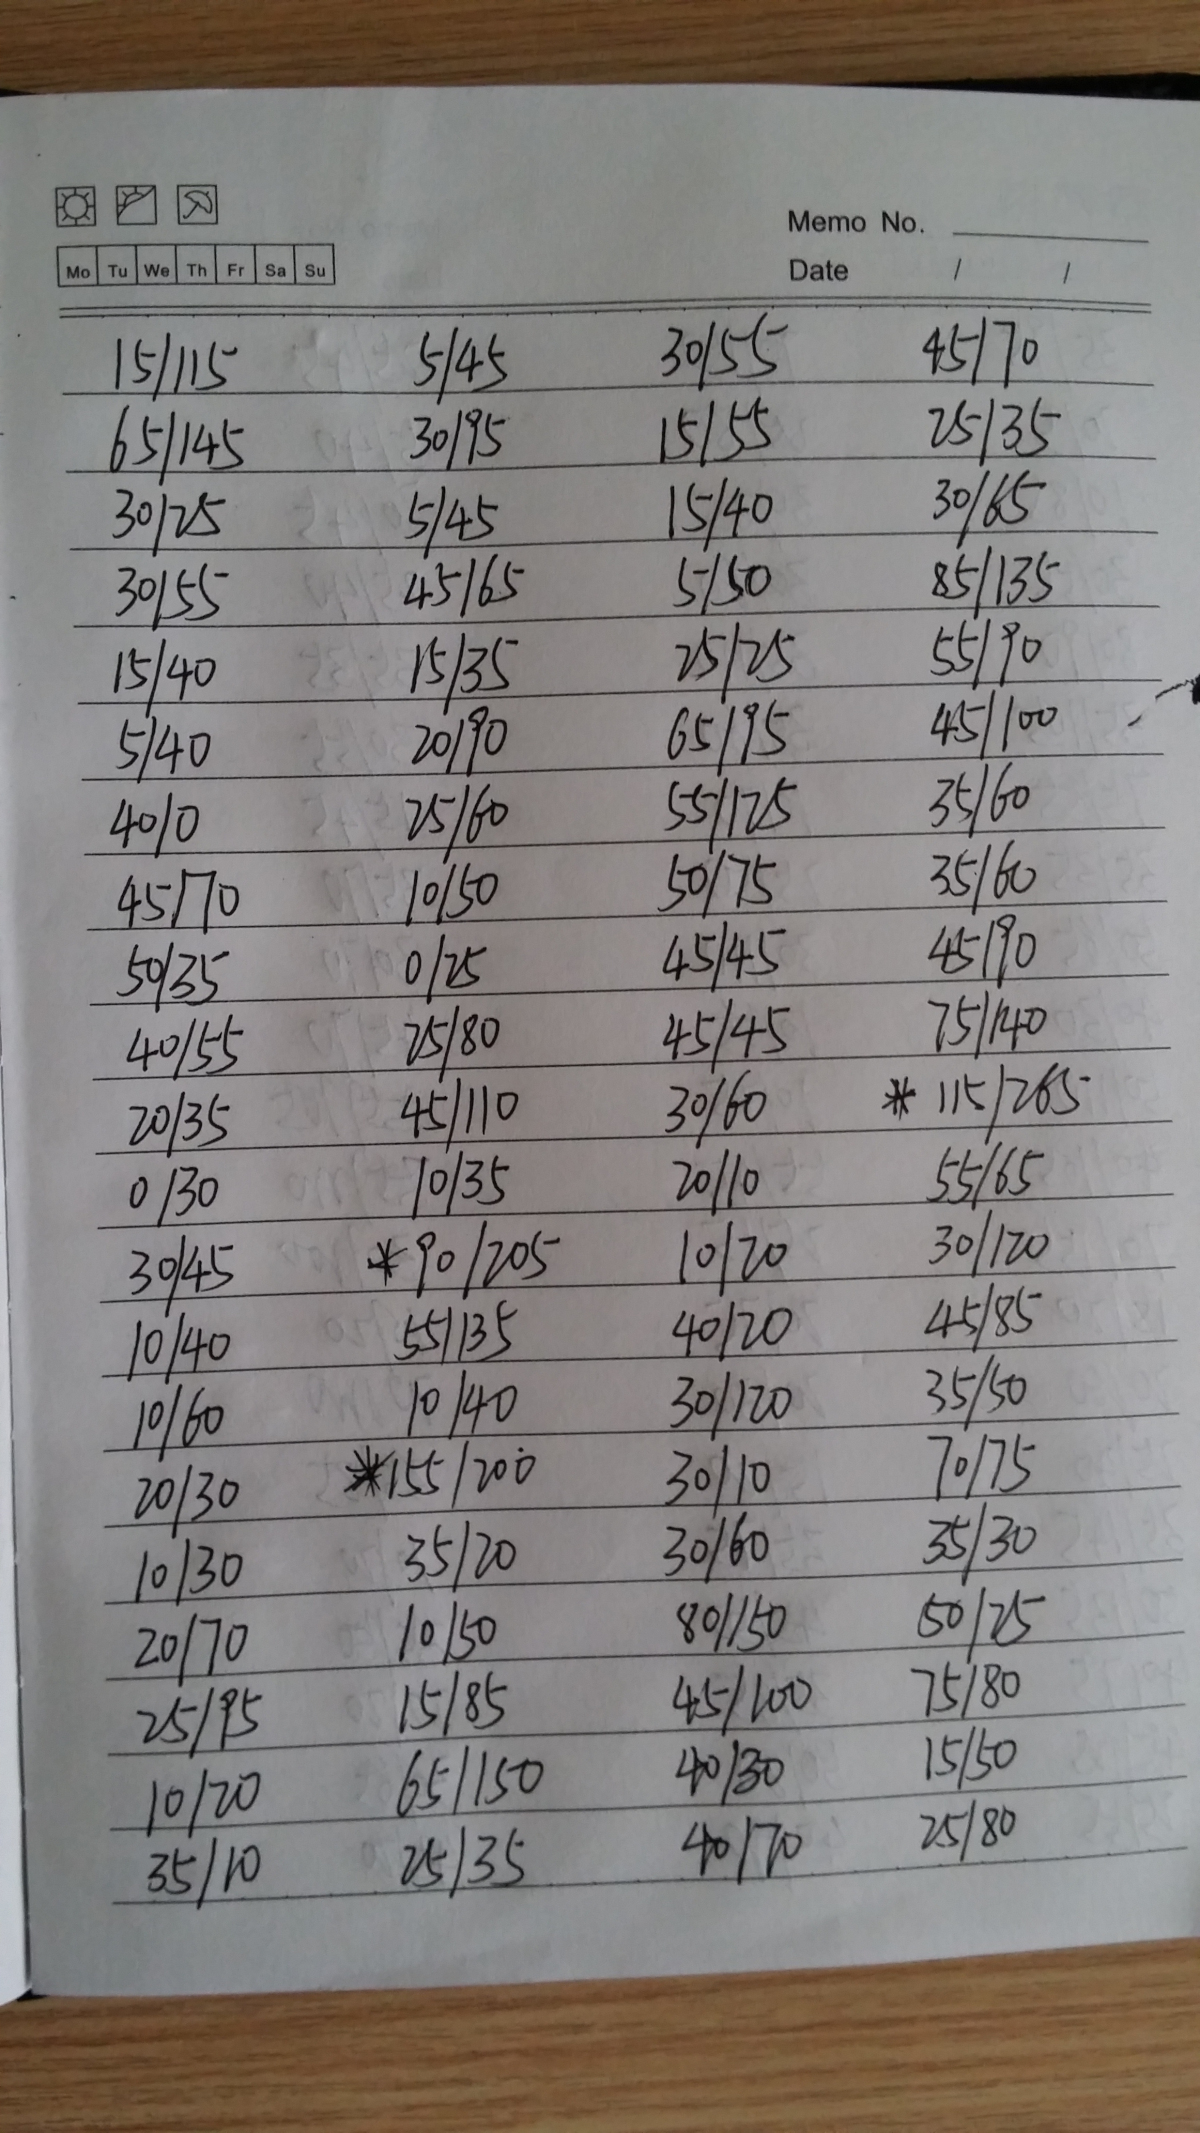 Memo No.
Mo Tu We Th Fr Sa Su
Date / /
15/115 5/45 30/55 45/70
65/145 30/95 15/55 25/35
30/25 5/45 15/40 30/65
30/55 45/65 5/50 85/135
15/40 15/35 25/25 55/90
5/40 20/90 65/95 45/100
40/0 25/60 55/125 35/60
45/70 10/50 50/75 35/60
50/35 0/25 45/45 45/90
40/55 25/80 45/45 75/140
20/35 45/110 30/60 * 115/265
0/30 10/35 20/10 55/65
30/45 *90/205 10/20 30/120
10/40 55/135 40/20 45/85
10/60 10/40 30/120 35/50
20/30 *155/200 30/10 70/75
10/30 35/20 30/60 35/30
20/70 10/50 80/150 50/25
25/95 15/85 45/100 75/80
10/20 65/150 40/30 15/50
35/10 25/35 40/70 25/80